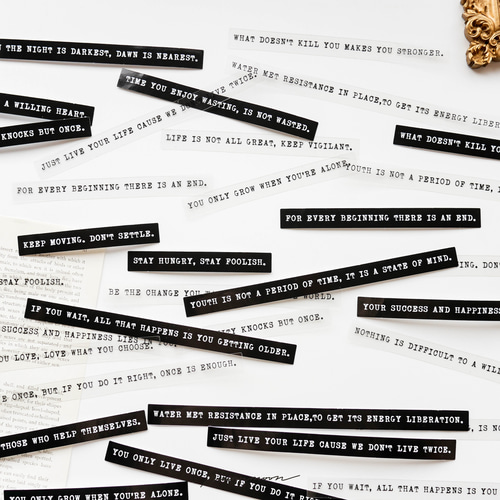 WHAT DOESN'T KILL YOU MAKES YOU STRONGER.
THE NIGHT IS DARKEST, DAWN IS NEAREST.
WATER MET RESISTANCE IN PLACE,TO GET ITS ENERGY LIBER
TIME YOU ENJOY WASTING, IS NOT WASTED.
A WILLING HEART.
KNOCKS BUT ONCE.
JUST LIVE YOUR LIFE CAUSE WE DON'T LIVE TWICE.
WHAT DOESN'T KILL YO
LIFE IS NOT ALL GREAT, KEEP VIGILANT.
YOUTH IS NOT A PERIOD OF TIME,
FOR EVERY BEGINNING THERE IS AN END.
YOU ONLY GROW WHEN YOU'RE ALONE.
FOR EVERY BEGINNING THERE IS AN END.
KEEP MOVING. DON'T SETTLE.
STAY HUNGRY, STAY FOOLISH.
YOUTH IS NOT A PERIOD OF TIME, IT IS A STATE OF MIND.
STAY FOOLISH.
BE THE CHANGE YOU WORLD.
IF YOU WAIT, ALL THAT HAPPENS IS YOU GETTING OLDER.
YOUR SUCCESS AND HAPPINESS
KNOCKS BUT ONCE.
SUCCESS AND HAPPINESS LIES IN
LOVE, LOVE WHAT YOU CHOOSE.
NOTHING IS DIFFICULT TO A WILL
ONCE, BUT IF YOU DO IT RIGHT, ONCE IS ENOUGH.
WATER MET RESISTANCE IN PLACE,TO GET ITS ENERGY LIBERATION.
THOSE WHO HELP THEMSELVES.
JUST LIVE YOUR LIFE CAUSE WE DON'T LIVE TWICE.
YOU ONLY LIVE ONCE, BUT IF YOU DO IT RI
YOU ONLY GROW WHEN YOU'RE ALONE.
IF YOU WAIT, ALL THAT HAPPENS IS YOU